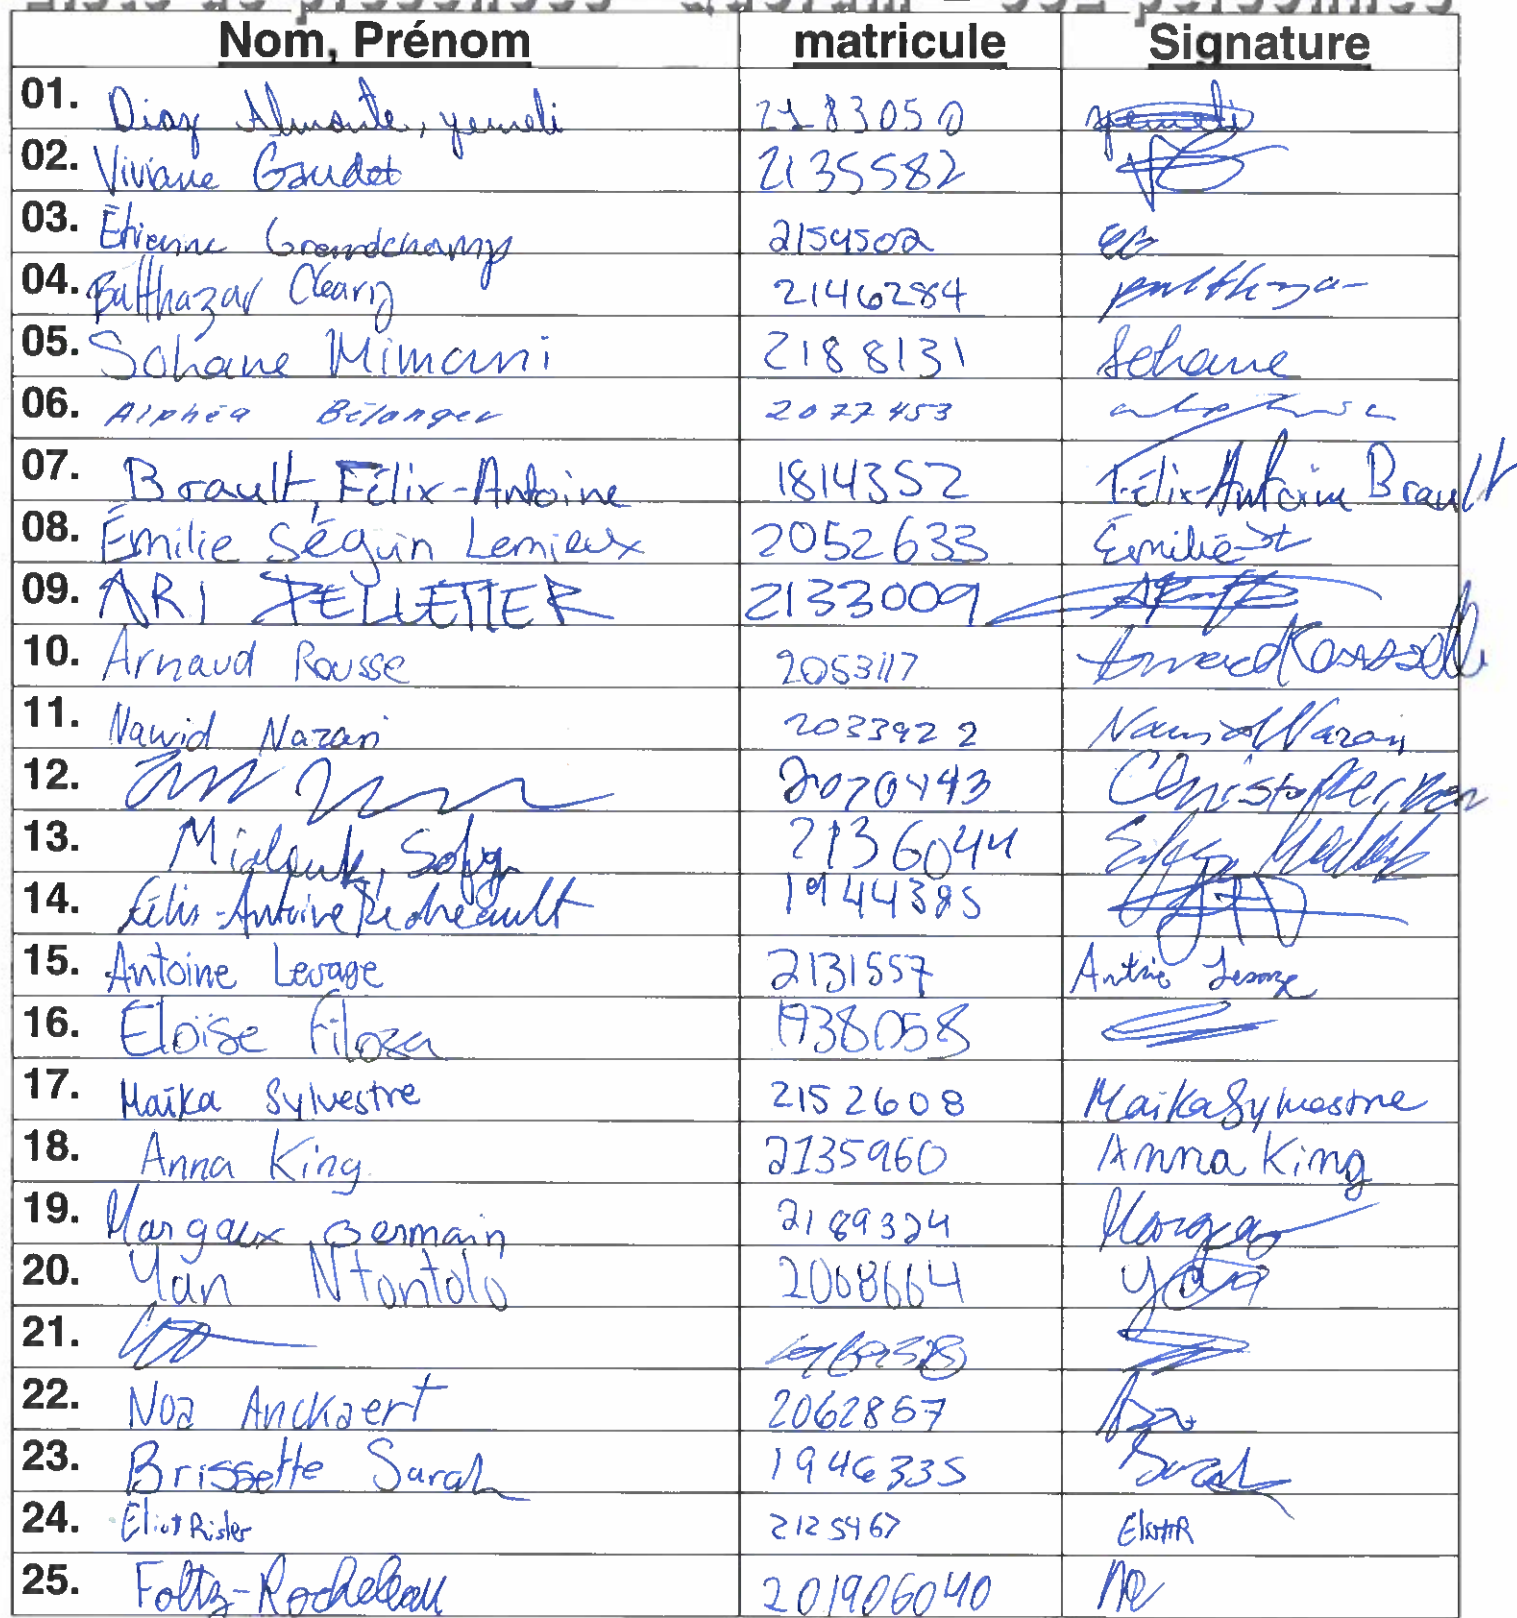 Liste de présences - Quorum = 352 personnes
Nom, Prénom matricule Signature
01. Diaz Almonte, yemeli 2183050 yemeli
02. Viviane Gaudet 2135582
03. Étienne Grandchamp 2159502 EG
04. Balthazar Cleary 2146284 balthazar
05. Sohane Mimani 2188131 Sohane
06. Alphéa Bélanger 2077453
07. Brault, Félix-Antoine 1814352 Félix-Antoine Brault
08. Émilie Séguin Lemieux 2052633 Émilie
09. ARI PELLETIER 2133009
10. Arnaud Rousse 2053117 Arnaud
11. Nawid Nazari 2033922 Nawid Nazari
12. 2070443 Christopher
13. 2136044
14. Félix-Antoine Richeault 1944385
15. Antoine Lesage 2131557 Antoine Lesage
16. Eloïse Filoza 1938058
17. Maïka Sylvestre 2152608 Maïka Sylvestre
18. Anna King 2135960 Anna King
19. Margaux Germain 2189324 Margaux
20. Yan Ntontolo 2068664 Yan
21.
22. Noa Anckaert 2062867
23. Brissette Sarah 1946335 Sarah
24. Eliot Risler 2125467 Eliot R
25. Foltz-Rocheleau 201906040